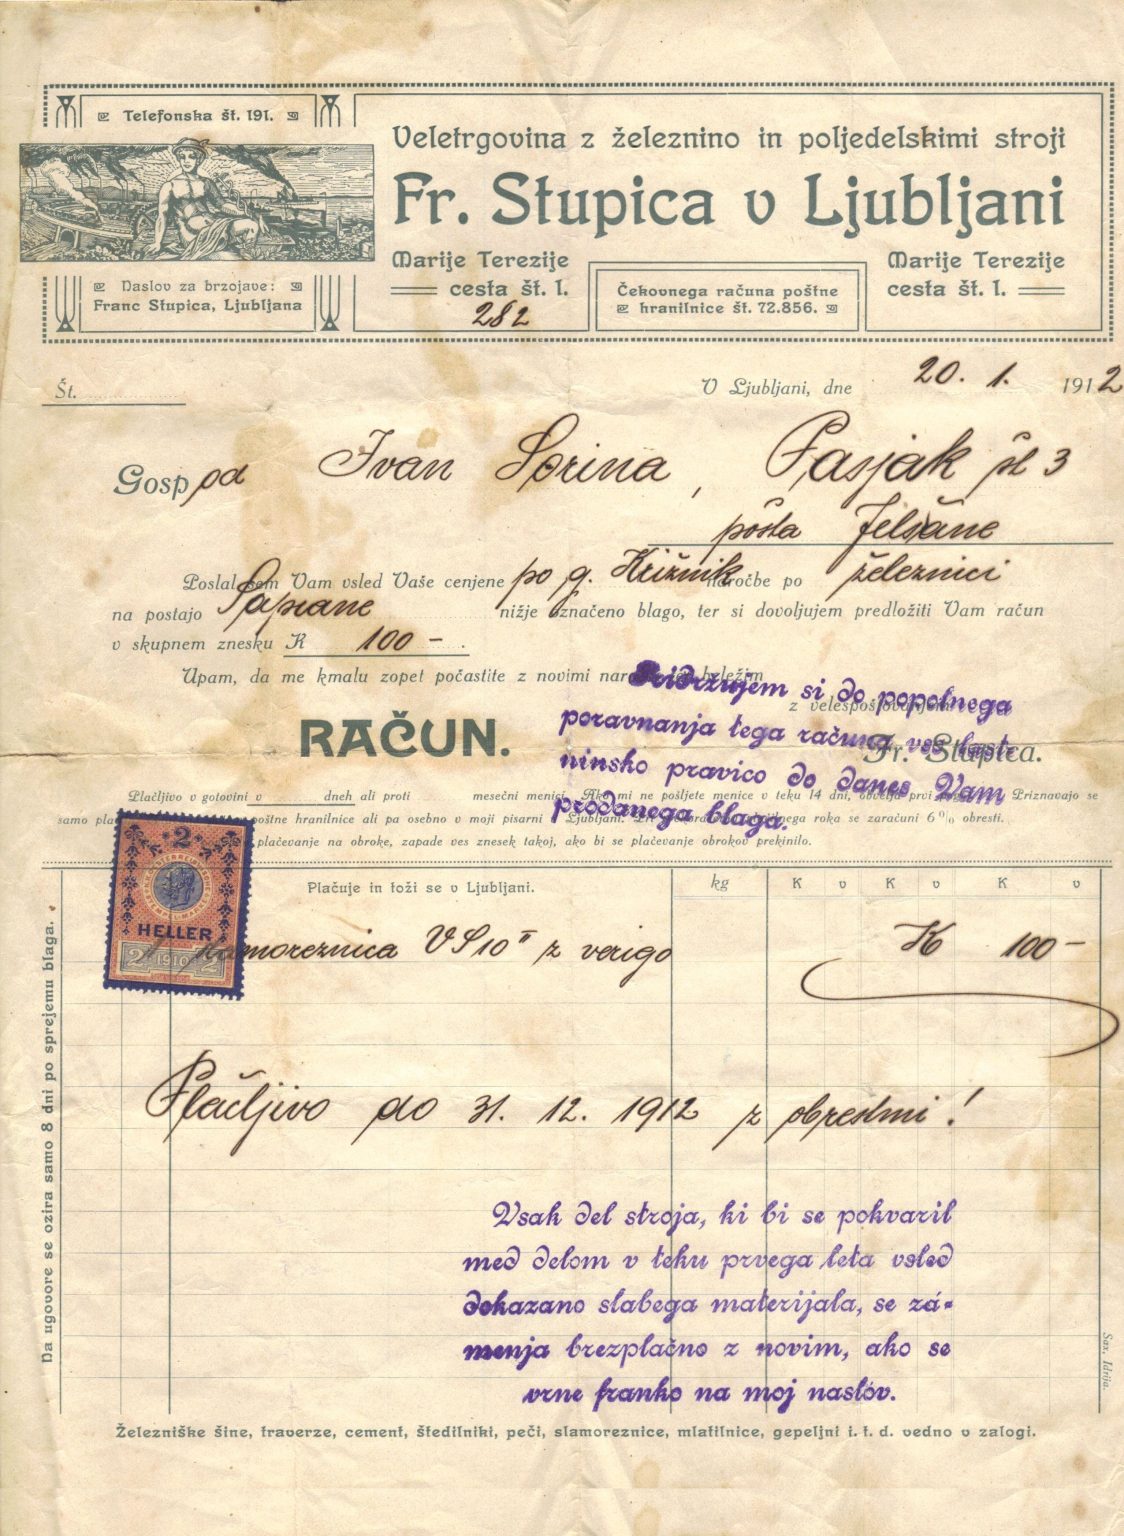 Telefonska št. 191.
Veletrgovina z železnino in poljedelskimi stroji
Fr. Stupica v Ljubljani
Marije Terezije
cesta št. 1.
282
Čekovnega računa poštne
hranilnice št. 72.856.
Marije Terezije
cesta št. 1.
Naslov za brzojave:
Franc Stupica, Ljubljana
Št.
V Ljubljani, dne 20. 1. 1912
Gospod Ivan Sorina, Pasjak št 3
pošta Jelšane
Poslal sem Vam vsled Vaše cenjene po g. Križnik naročbe po železnici
na postajo Sapiane nižje označeno blago, ter si dovoljujem predložiti Vam račun
v skupnem znesku K 100 –.
Upam, da me kmalu zopet počastite z novimi beležim
z velespoštovanjem
Pridržujem si do popolnega
poravnanja tega računa vso lastninsko pravico do danes Vam
prodanega blaga.
RAČUN.
Fr. Stupica.
Plačljivo v gotovini v dneh ali proti mesečni menici. Ako mi ne pošljete menice v teku 14 dni, prvi Priznavajo se
samo poštne hranilnice ali pa osebno v moji pisarni v Ljubljani. roka se zaračuni 6% obresti.
plačevanje na obroke, zapade ves znesek takoj, ako bi se plačevanje obrokov prekinilo.
2
HELLER
2 1910 2
Plačuje in toži se v Ljubljani.
kg K v K v K v
1 slamoreznica VS10" z verigo K 100 –
Plačljivo do 31. 12. 1912 z obrestmi!
Vsak del stroja, ki bi se pokvaril
med delom v teku prvega leta vsled
dokazano slabega materijala, se za-
menja brezplačno z novim, ako se
vrne franko na moj naslov.
Da ugovore se ozira samo 8 dni po sprejemu blaga.
Sax, Idrija.
Železniške šine, traverze, cement, štedilniki, peči, slamoreznice, mlatilnice, gepeljni i. t. d. vedno v zalogi.